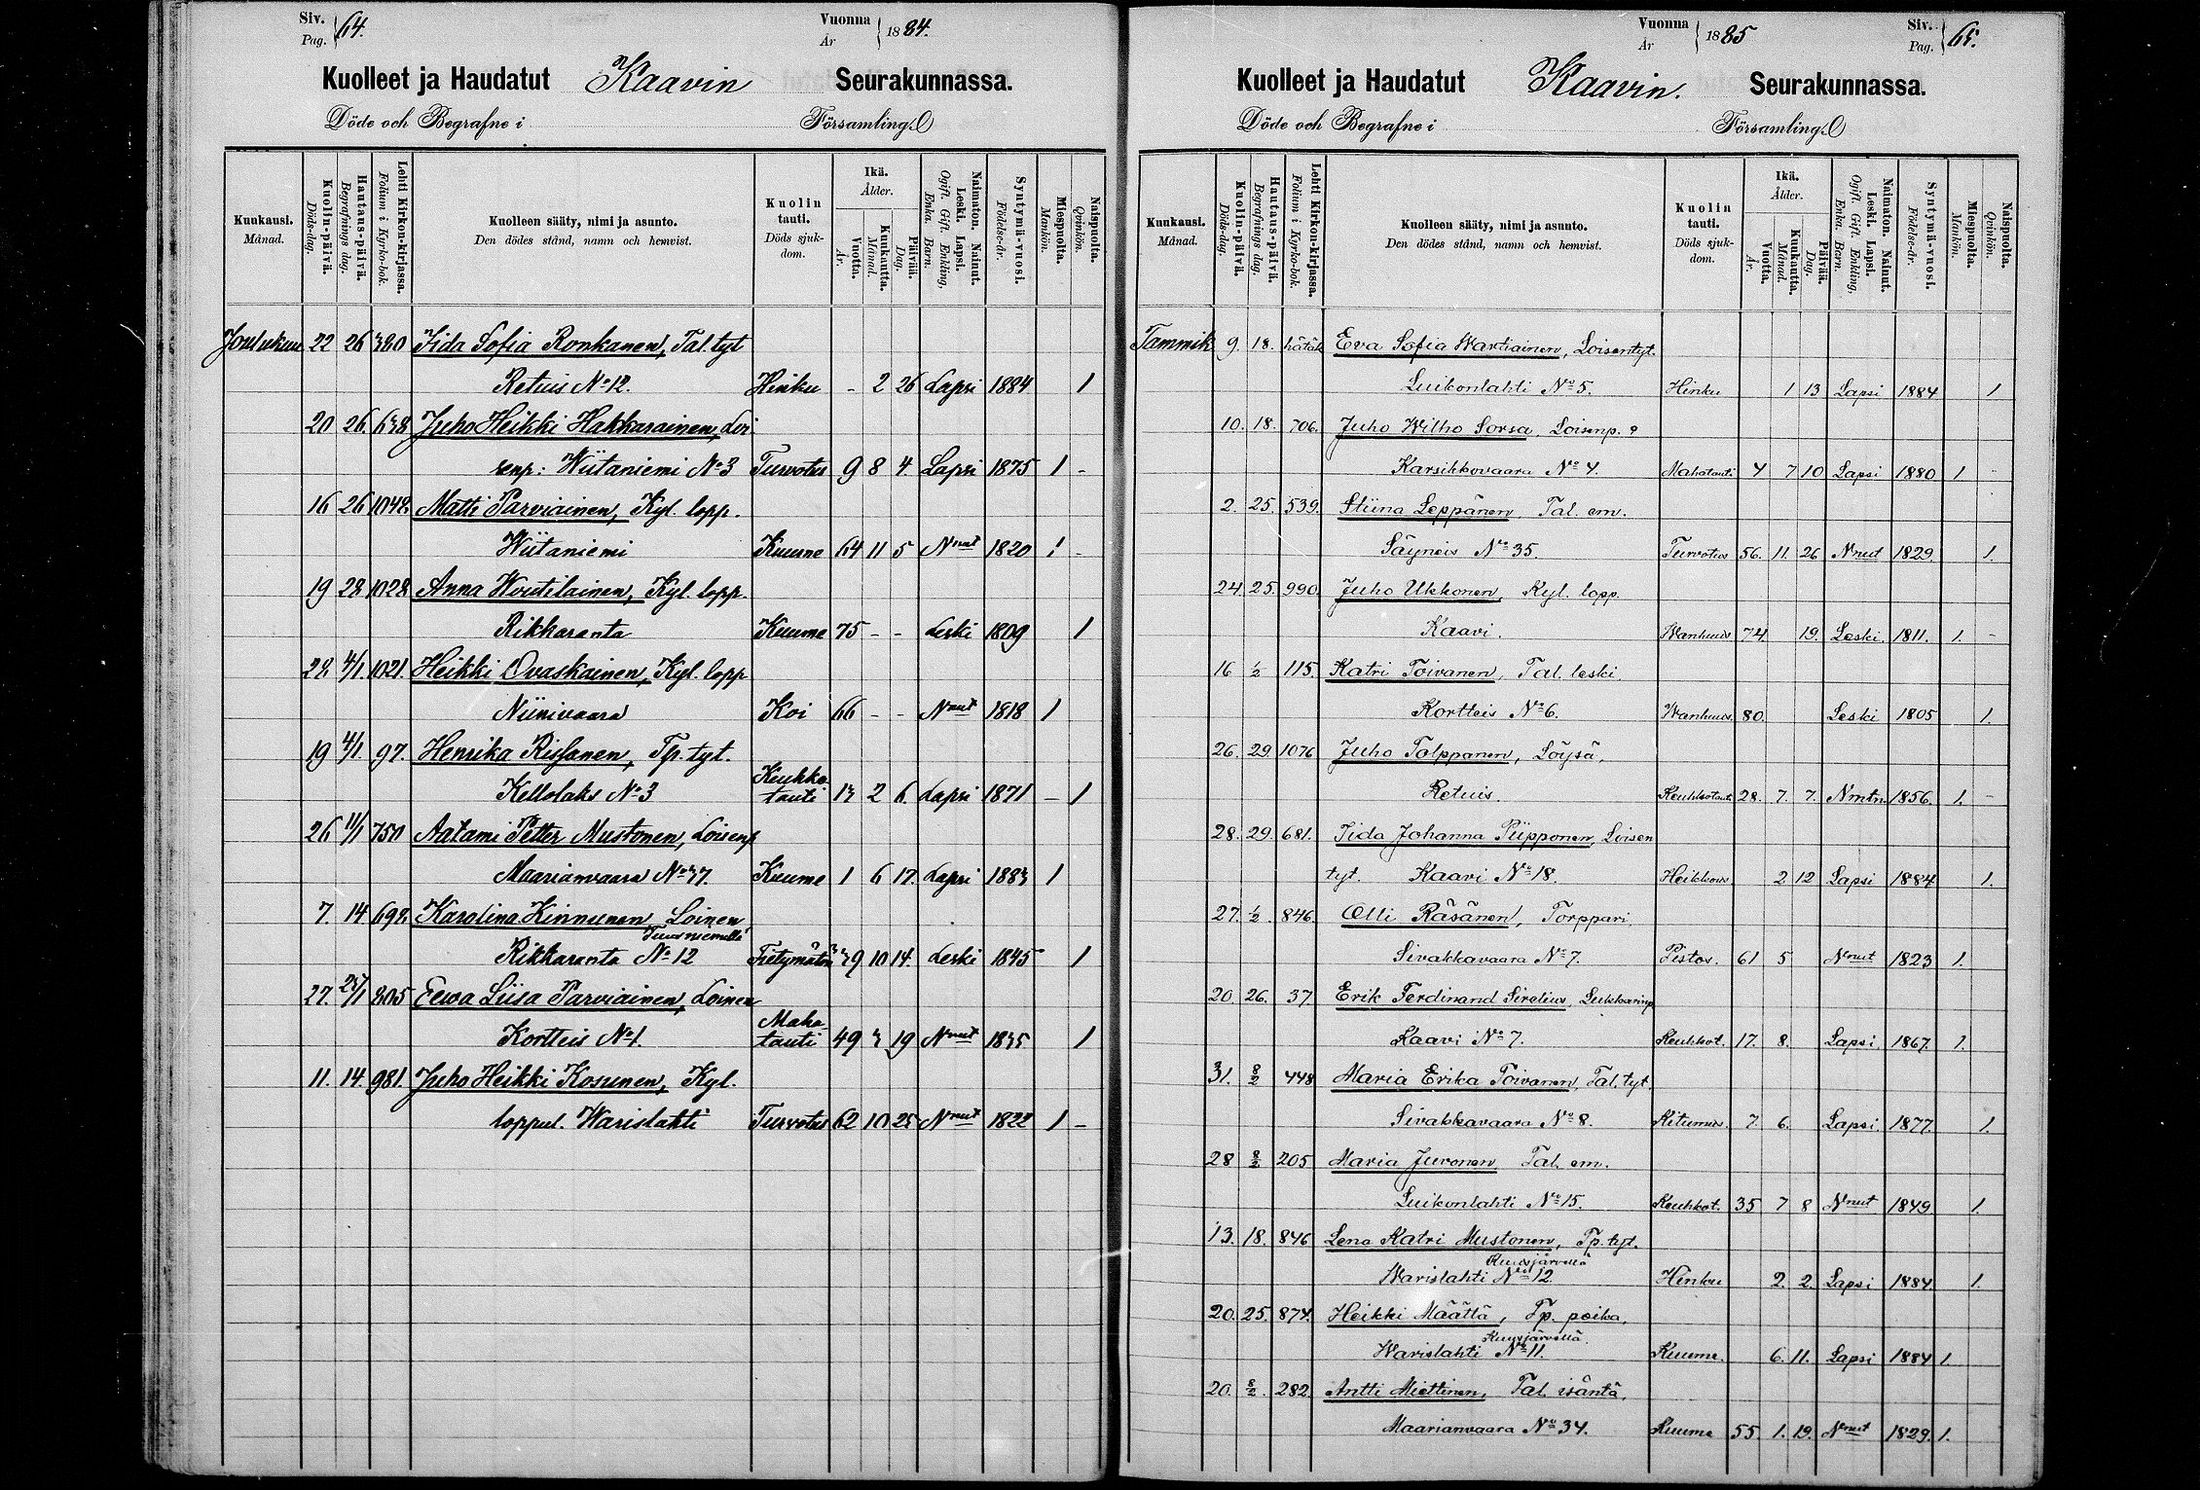 Siv. Pag. 64. Vuonna År 1884.
Kuolleet ja Haudatut Kaavin Seurakunnassa.
Döde och Begrafne i Församling.
Kuukausi. Månad. Kuolin-päivä. Döds-dag. Hautaus-päivä. Begrafnings dag. Lehti Kirkon-kirjassa. Folium i Kyrko-bok. Kuolleen sääty, nimi ja asunto. Den dödes stånd, namn och hemvist. Kuolin tauti. Döds sjuk-dom. Ikä. Ålder. Vuotta. År. Kuukautta. Månad. Päivää. Dag. Naimaton. Nainut. Leski. Lapsi. Ogift. Gift. Enkling, Enka. Barn. Syntymä-vuosi. Födelse-år. Miespuolta. Mankön. Naispuolta. Qvinkön.
Joulukuu 22 26 380 Iida Sofia Ronkanen, Tal. tyt
Retuis No 12. Hinku - 2 26 Lapsi 1884 1
20 26. 638 Juho Heikki Hakkarainen, Loi-
senp: Wiitaniemi No 3 Turvotus 9 8 4. Lapsi 1875 1 -
16 26 1048. Matti Parviainen, Kyl. lopp.
Wiitaniemi Kuume 64 11 5 Nnut 1820 1 -
19 28 1028 Anna Woutilainen, Kyl. lopp.
Rikkaranta Kuume 75 - - Leski 1809 1
28. 4/1. 1021. Heikki Ovaskainen, Kyl. lopp
Niinivaara Koi 66 - - Nnut 1818 1
19 4/1 97. Henrika Rissanen, Tp. tyt.
Kellolaks No 3 Keuhko tauti 13 2 6. Lapsi 1871 - 1
26 11/1 750 Aatami Petter Mustonen, Loisenp
Maarianvaara No 37. Kuume 1 6 17. Lapsi 1883 1
7. 14 698. Karolina Kinnunen, Loinen
Tuusniemellä
Rikkaranta No 12 Tietymätön 39 10 14. Leski 1845 1
27. 25/1 805 Eewa Liisa Parviainen, Loinen
Kortteis No 1. Maha-tauti 49 3 19 Nnut 1835 1
11. 14. 981. Juho Heikki Kosunen, Kyl.
loppul. Warislahti Turvotus 62 10 25 Nnut 1822 1 -
Vuonna År 1885 Siv. Pag. 65.
Kuolleet ja Haudatut Kaavin. Seurakunnassa.
Döde och Begrafne i Församling.
Kuukausi. Månad. Kuolin-päivä. Döds-dag. Hautaus-päivä. Begrafnings dag. Lehti Kirkon-kirjassa. Folium i Kyrko-bok. Kuolleen sääty, nimi ja asunto. Den dödes stånd, namn och hemvist. Kuolin tauti. Döds sjuk-dom. Ikä. Ålder. Vuotta. År. Kuukautta. Månad. Päivää. Dag. Naimaton. Nainut. Leski. Lapsi. Ogift. Gift. Enkling, Enka. Barn. Syntymä-vuosi. Födelse-år. Miespuolta. Mankön. Naispuolta. Qvinkön.
Tammik 9. 18. Eva Sofia Wartiainen, Loisentyt.
Luikonlahti No 5. Hinku 1 13 Lapsi 1884 1
10. 18. 706. Juho Wilho Sorsa, Loisenp.
Karsikkovaara No 4. Mahatauti 4 7 10 Lapsi 1880 1. -
2. 25. 539. Stiina Leppänen, Tal. em.
Säyneis No 35. Turvotus 56. 11. 26 Nnut 1829. 1.
24. 25. 990. Juho Ukkonen, Kyl. lopp.
Kaavi. Wanhuus. 74. 19. Leski. 1811. 1. -
16 1/2 115. Katri Toivanen, Tal. leski.
Kortteis No 6. Wanhuus. 80. Leski 1805 1.
26. 29. 1076 Juho Tolppanen, Löysä,
Retuis. Keuhkotaut. 28. 7. 7. Nmtn. 1856. 1. -
28. 29. 681. Iida Johanna Piipponen, Loisen
tyt. Kaavi No 18. Heikkous. 2 12 Lapsi 1884 1.
27. 1/2. 846. Olli Räsänen, Torppari.
Sivakkavaara No 7. Pistos. 61 5 Nnut 1823 1.
20. 26. 37. Erik Ferdinand Sirelius,
Kaavi No 7. Keuhkot. 17. 8. Lapsi. 1867. 1.
31. 8/2 448 Maria Erika Toivanen, Tal. tyt.
Sivakkavaara No 8. Kitumus. 7. 6. Lapsi. 1877. 1.
28 8/2 205 Maria Juvonen, Tal. em.
Luikonlahti No 15. Keuhkot. 35 7 8 Nnut 1849. 1.
13. 18. 846 Lena Katri Mustonen, Tp. tyt.
Kuusjärvellä
Warislahti No 12. Hinku 2. 2. Lapsi 1884. 1.
20. 25. 874. Heikki Määttä, Tp. poika,
Kuusjärvellä.
Warislahti No 11. Kuume. 6. 11. Lapsi 1884 1.
20. 8/2. 282. Antti Miettinen, Tal. isäntä,
Maarianvaara No 34. Kuume 55. 1. 19. Nnut 1829. 1.